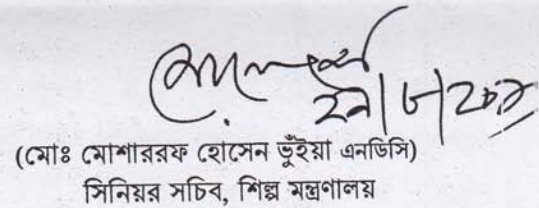 (মোঃ মোশাররফ হোসেন ভূঁইয়া এনডিসি)
সিনিয়র সচিব, শিল্প মন্ত্রণালয়